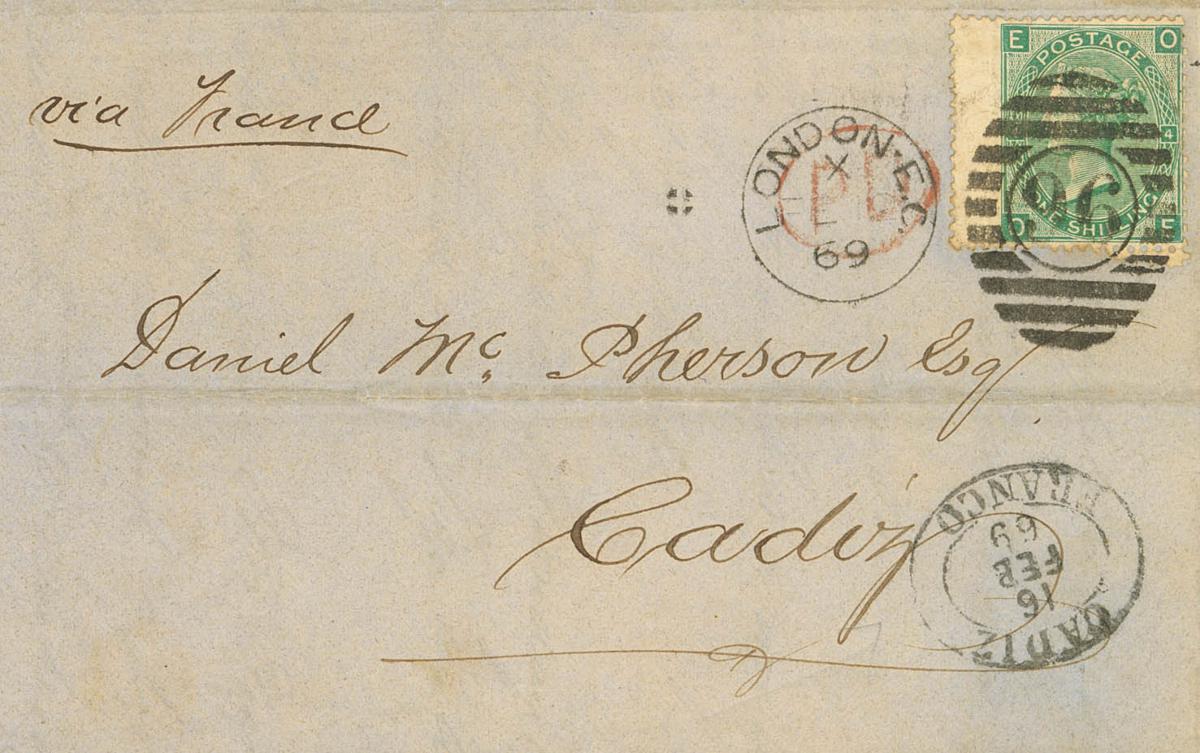 via France
E O
POSTAGE
4
ONE SHILLING
O E
96
LONDON·E.C.
X
69
Daniel Mc. Pherson Esq
Cadiz
FRANCO
69
FEB
16
CADIZ